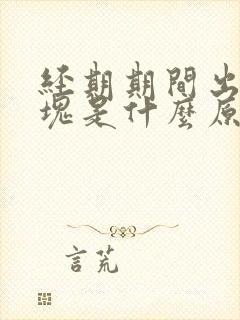 經期期間出
塊是什麼原
言荒